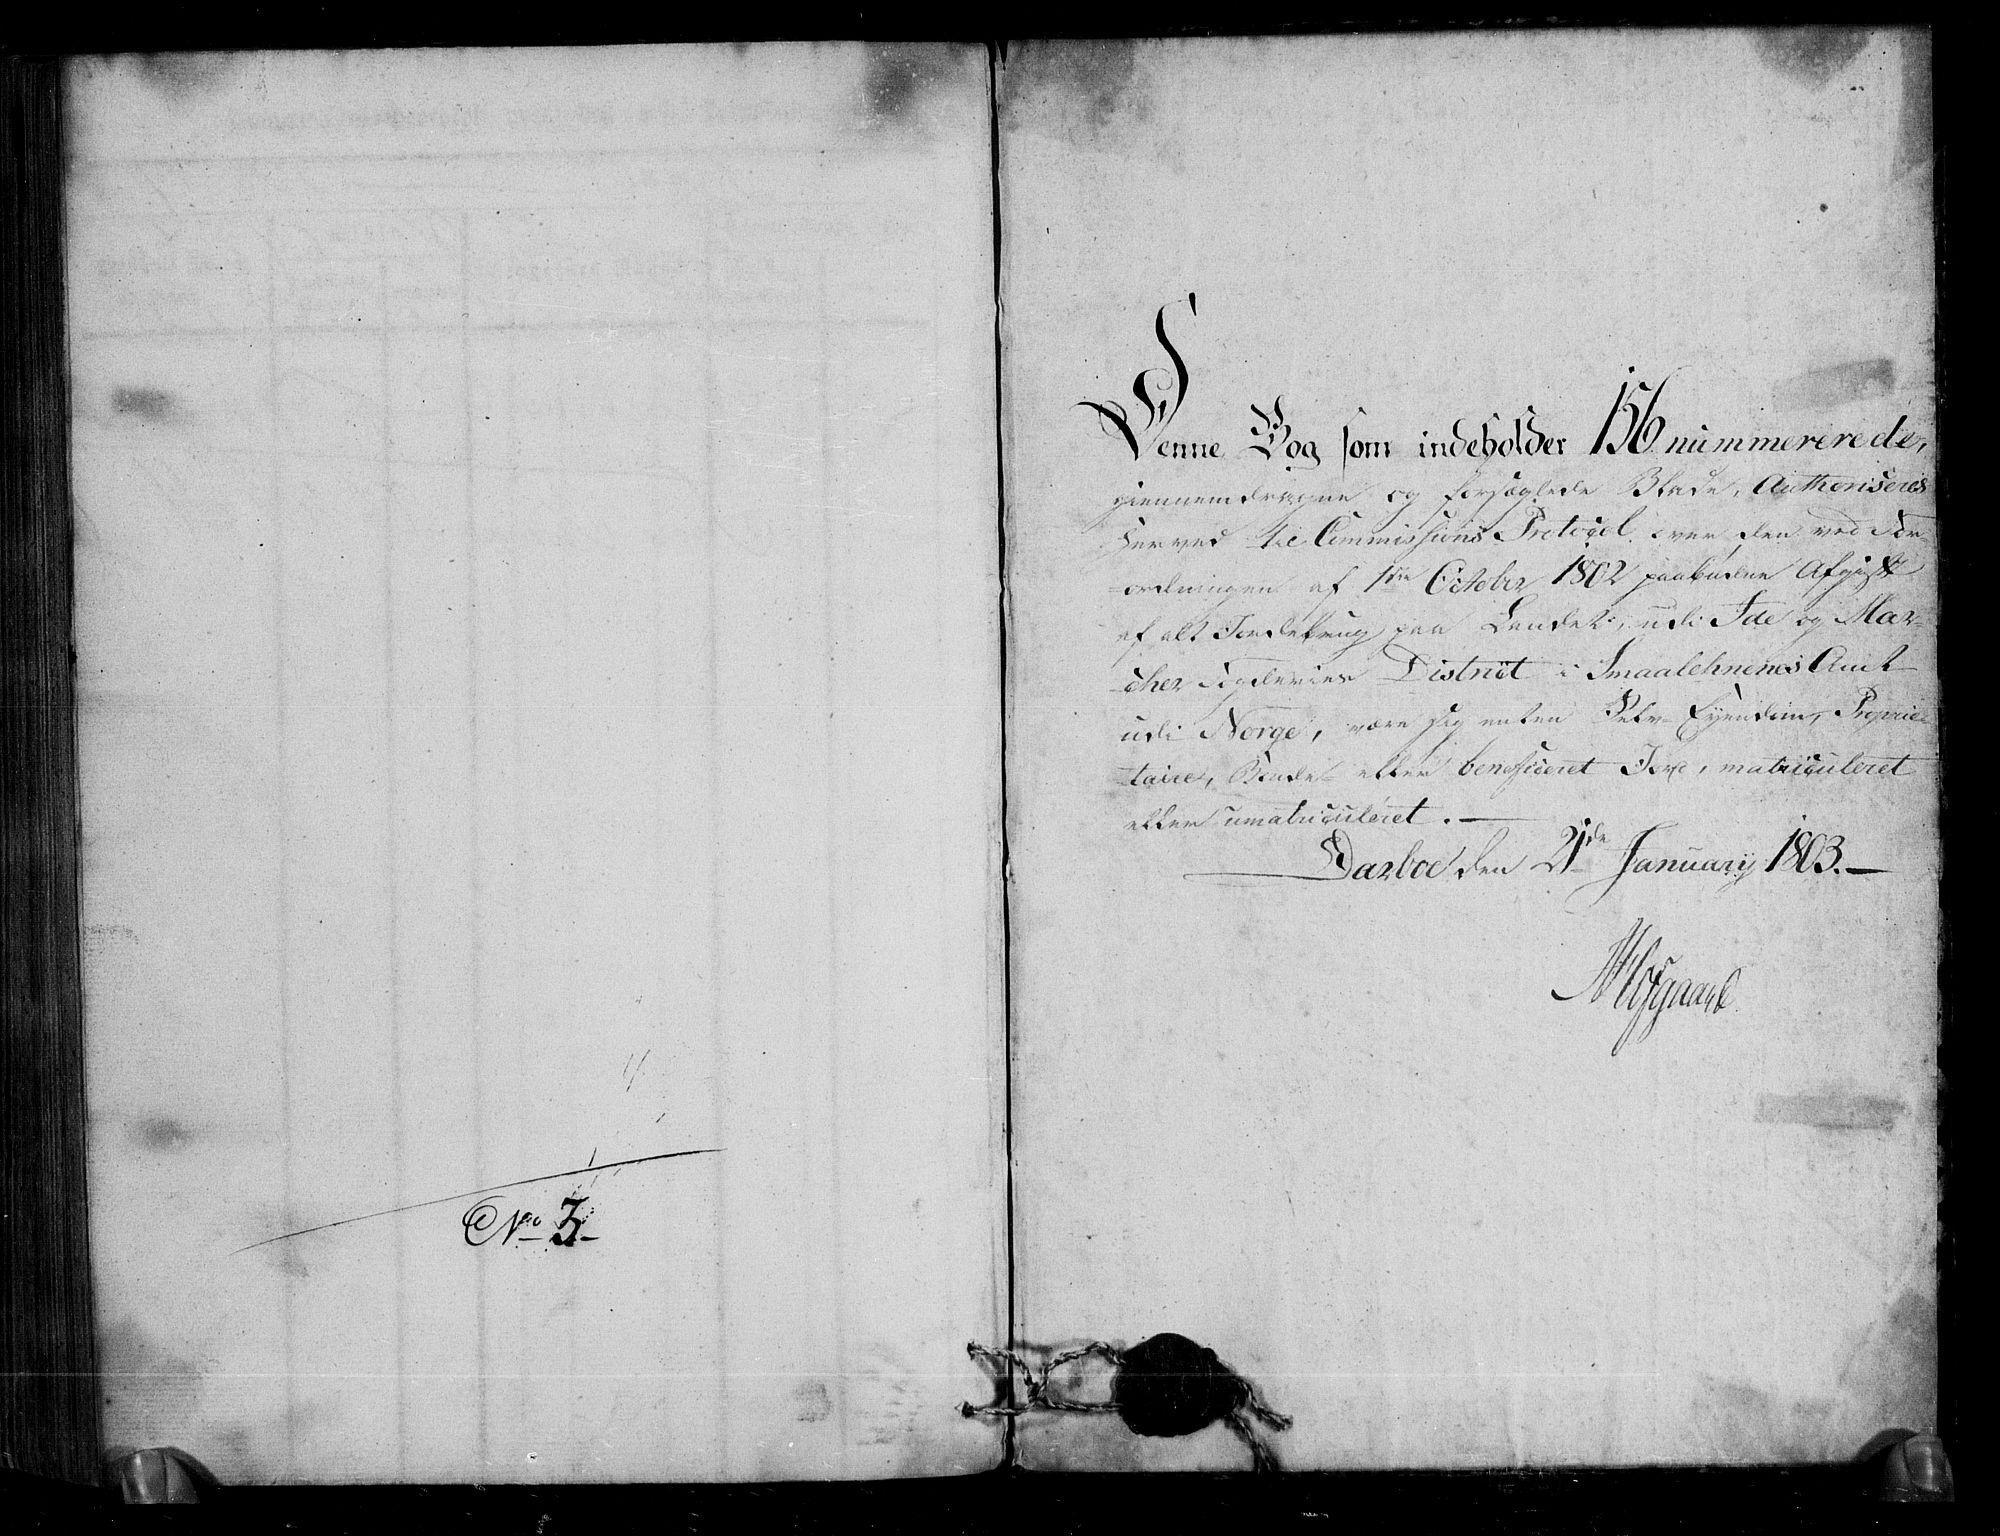 No 3
Denne Bog som indeholder 156 nummererede,
giennemdragne og forseglede Blade, Authoriseres
herved til Commissions Protocol over den ved For-
ordningen af 1ste October 1802 paabudne Afgift
af alt Jordebrug paa Landet, udi Ide og Mar-
cher Fogderies District i Smaalehnenes Amt
udi Norge, være sig enten Selv-Eyendom, Proprie-
taire, Bonde- eller beneficeret Jord, matriculeret
eller umatriculeret. —
Darboe den 21de January 1803. —